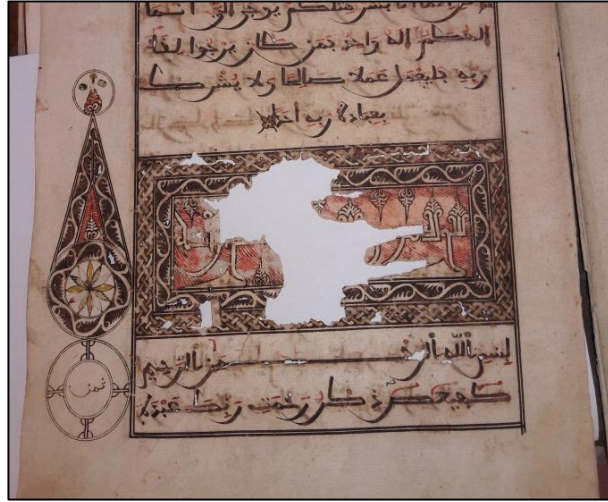 إنما أنا بشر مثلكم يوحى إلى أنما
إلهكم إله واحد فمن كان يرجوا لقاء
ربه فليعمل عملا صالحا ولا يشرك
بعبادة ربه أحدا
بسم ألله ألرحمن ألرحيم
كهيعص ذكر رحمت ربك عبده
ثمن